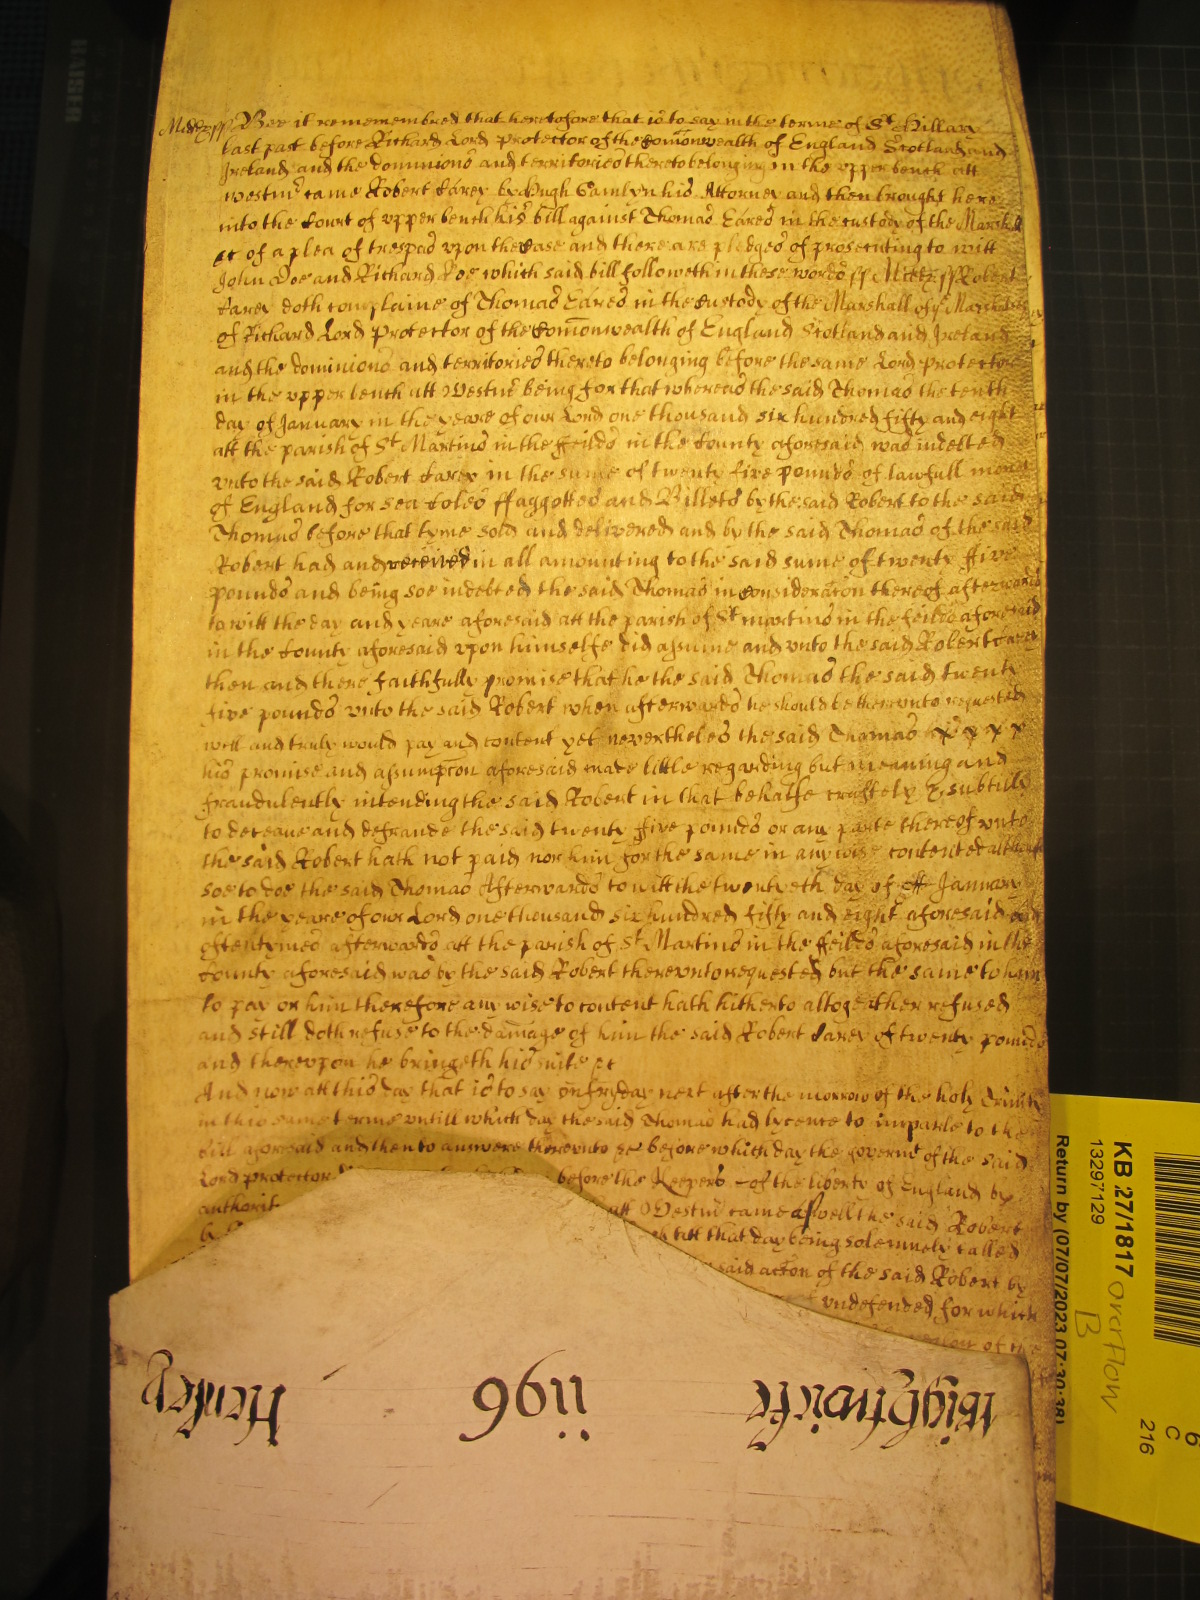 Middx ss Bee it rememembred that heretofore that is to say in the terme of St Hillary
last past before Richard Lord Protector of the Com̄onwealth of England Scotland and
Ireland and the dominions and territories thereto belonging in the vpper bench att
westmr came Robert Carey by Hugh Hamlyn his Attorney and then brought here
into the Court of vpper bench his bill against Thomas Eares in the custody of the Marshall
&c of a plea of trespas vpon the case and there are pledges of prosecuting to witt
John Doe and Richard Roe which said bill followeth in these words ss Middx ss Robert
Carey doth complaine of Thomas Eares in the custody of the Marshall of ye Marshalsea
of Richard Lord Protector of the Com̄onwealth of England Scotland and Ireland
and the dominions and territories thereto belonging before the same Lord Protector
in the vpper bench att Westmr being for that whereas the said Thomas the tenth
day of January in the yeare of our Lord one thousand six hundred fifty and eight
att the parish of St Martins in the ffeilds in the County aforesaid was indebted
vnto the said Robert Carey in the sume of twenty five pounds of lawfull money
of England for sea Coles ffaggottes and Billets by the said Robert to the said
Thomas before that tyme sold and delivered and by the said Thomas of the said
Robert had and received in all amounting to the said sume of twenty ffive
pounds and being soe indebted the said Thomas in consideracōn thereof afterwards
to witt the day and yeare aforesaid att the parish of St martins in the feilds aforesaid
in the County aforesaid vpon himselfe did assume and vnto the said Robert Carey
then and there faithfully promise that he the said Thomas the said twenty
five pounds vnto the said Robert when afterwards he should be therevnto requested
well and truly would pay and content yet nevertheles the said Thomas x x x x
his promise and assumpcōn aforesaid made little regarding but meaning and
fraudulently intending the said Robert in that behalfe craftely & subtilly
to deceaue and defraude the said twenty ffive pounds or any parte thereof vnto
the said Robert hath not paid nor him for the same in any wise contented although
soe to doe the said Thomas Afterwards to witt the twentyeth day of January
in the yeare of our Lord one thousand six hundred fifty and eight aforesaid and
oftentymes afterwards att the parish of St Martins in the ffeilds aforesaid in the
County aforesaid was by the said Robert therevnto requested but the same to him
to pay or him therefore any wise to content hath hitherto altogeather refused
and still doth refuse to the damage of him the said Robert Carey of twenty pounds
and therevpon he bringeth his suite &c
And now att this day that is to say on fryday next after the morrow of the holy Trinity
in this same terme vntill which day the said Thomas had lycence to imparle to the
bill aforesaid and then to answere therevnto &c before which day the governmt of the said
Lord protector before the Keepers of the liberty of England by
authorit att Westmr came aswell the said Robert
att that day being solemnely called
said accōn of the said Robert by
vndefended for which
of the
Wightwicke ii96 Henley
KB 27/1817 overflow B
13297129
Return by (07/07/2023 07:30:38)
6
C
216
KAISER